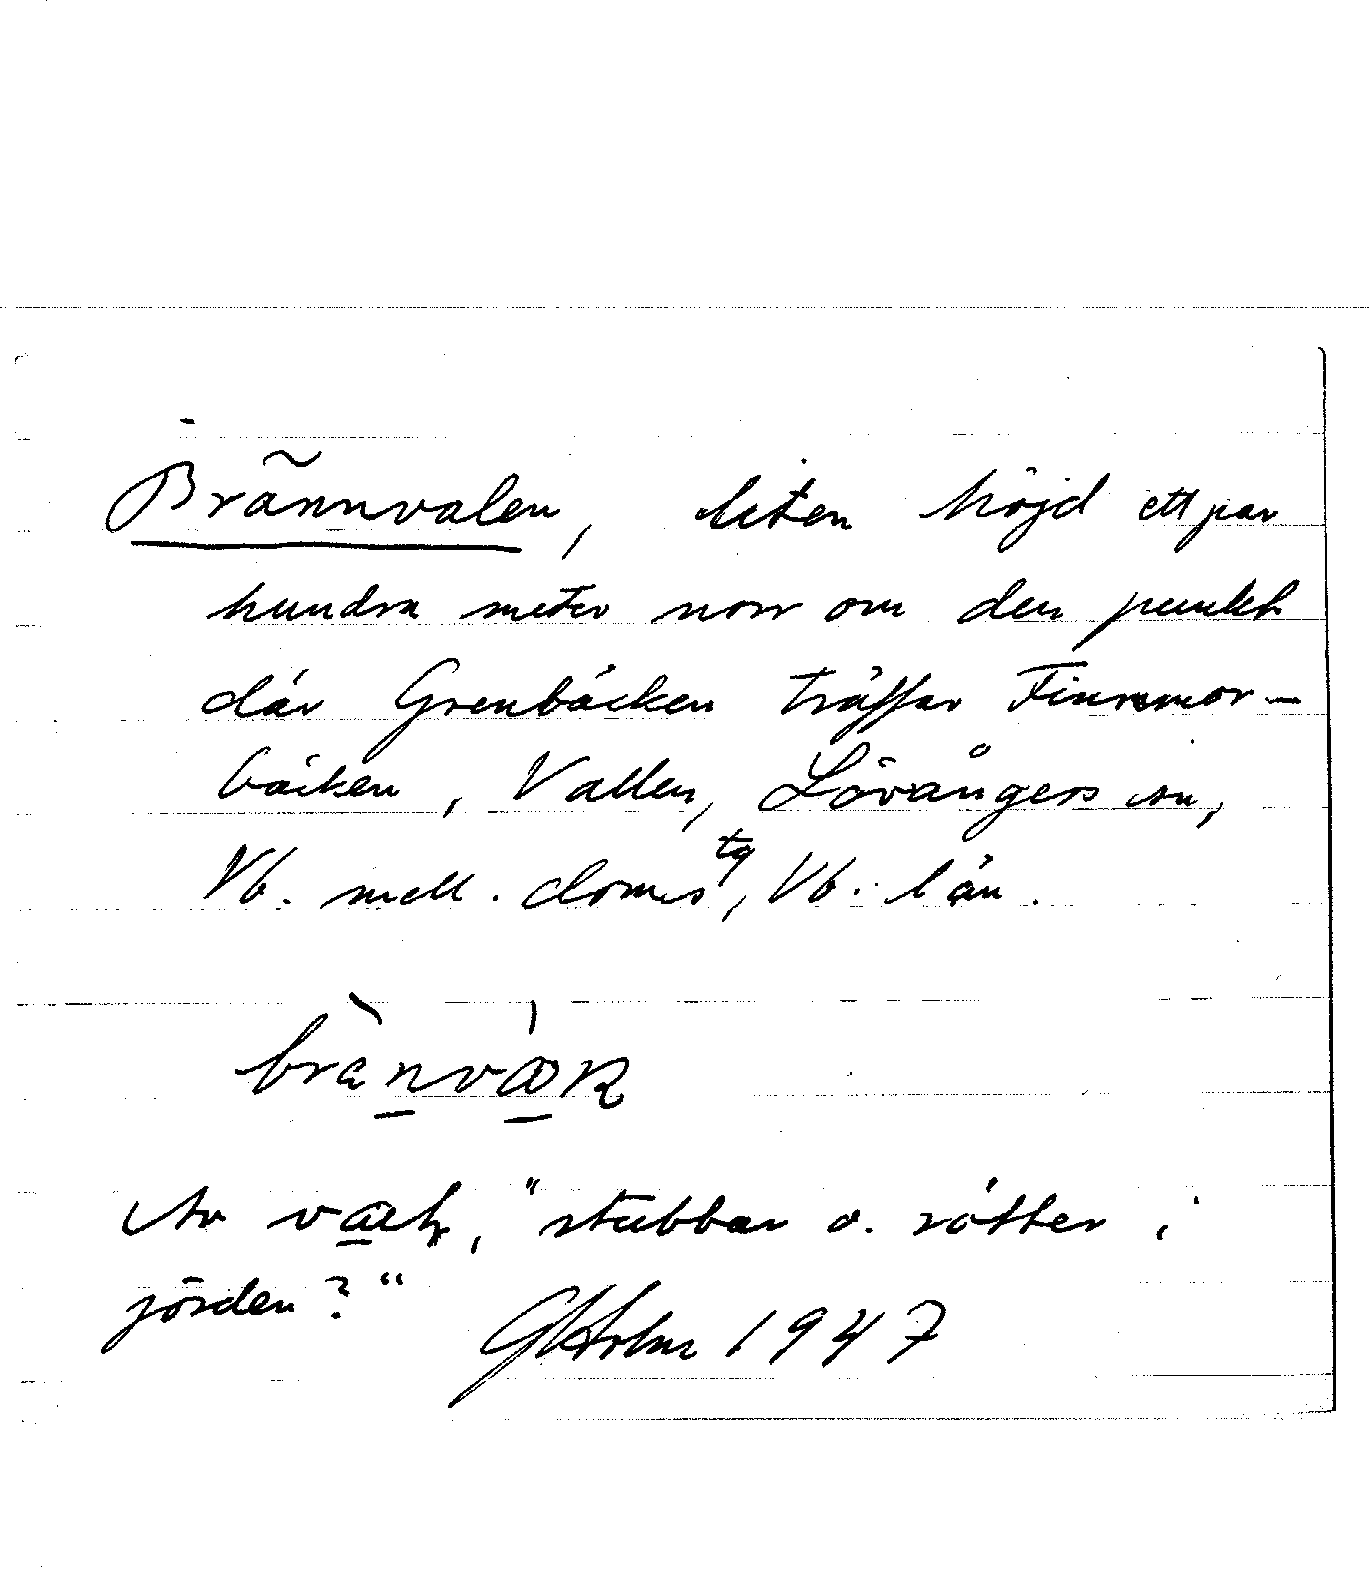 Brännvalen, liten höjd ett par
hundra meter norr om den punkt
där Grenbäcken träffar Finnmor-
bäcken, Vallen, Lövångers sn,
Vb. mell. doms tg, Vb. län.
Av "stubbar o. rötter i
jorden?"
GHolm 1947